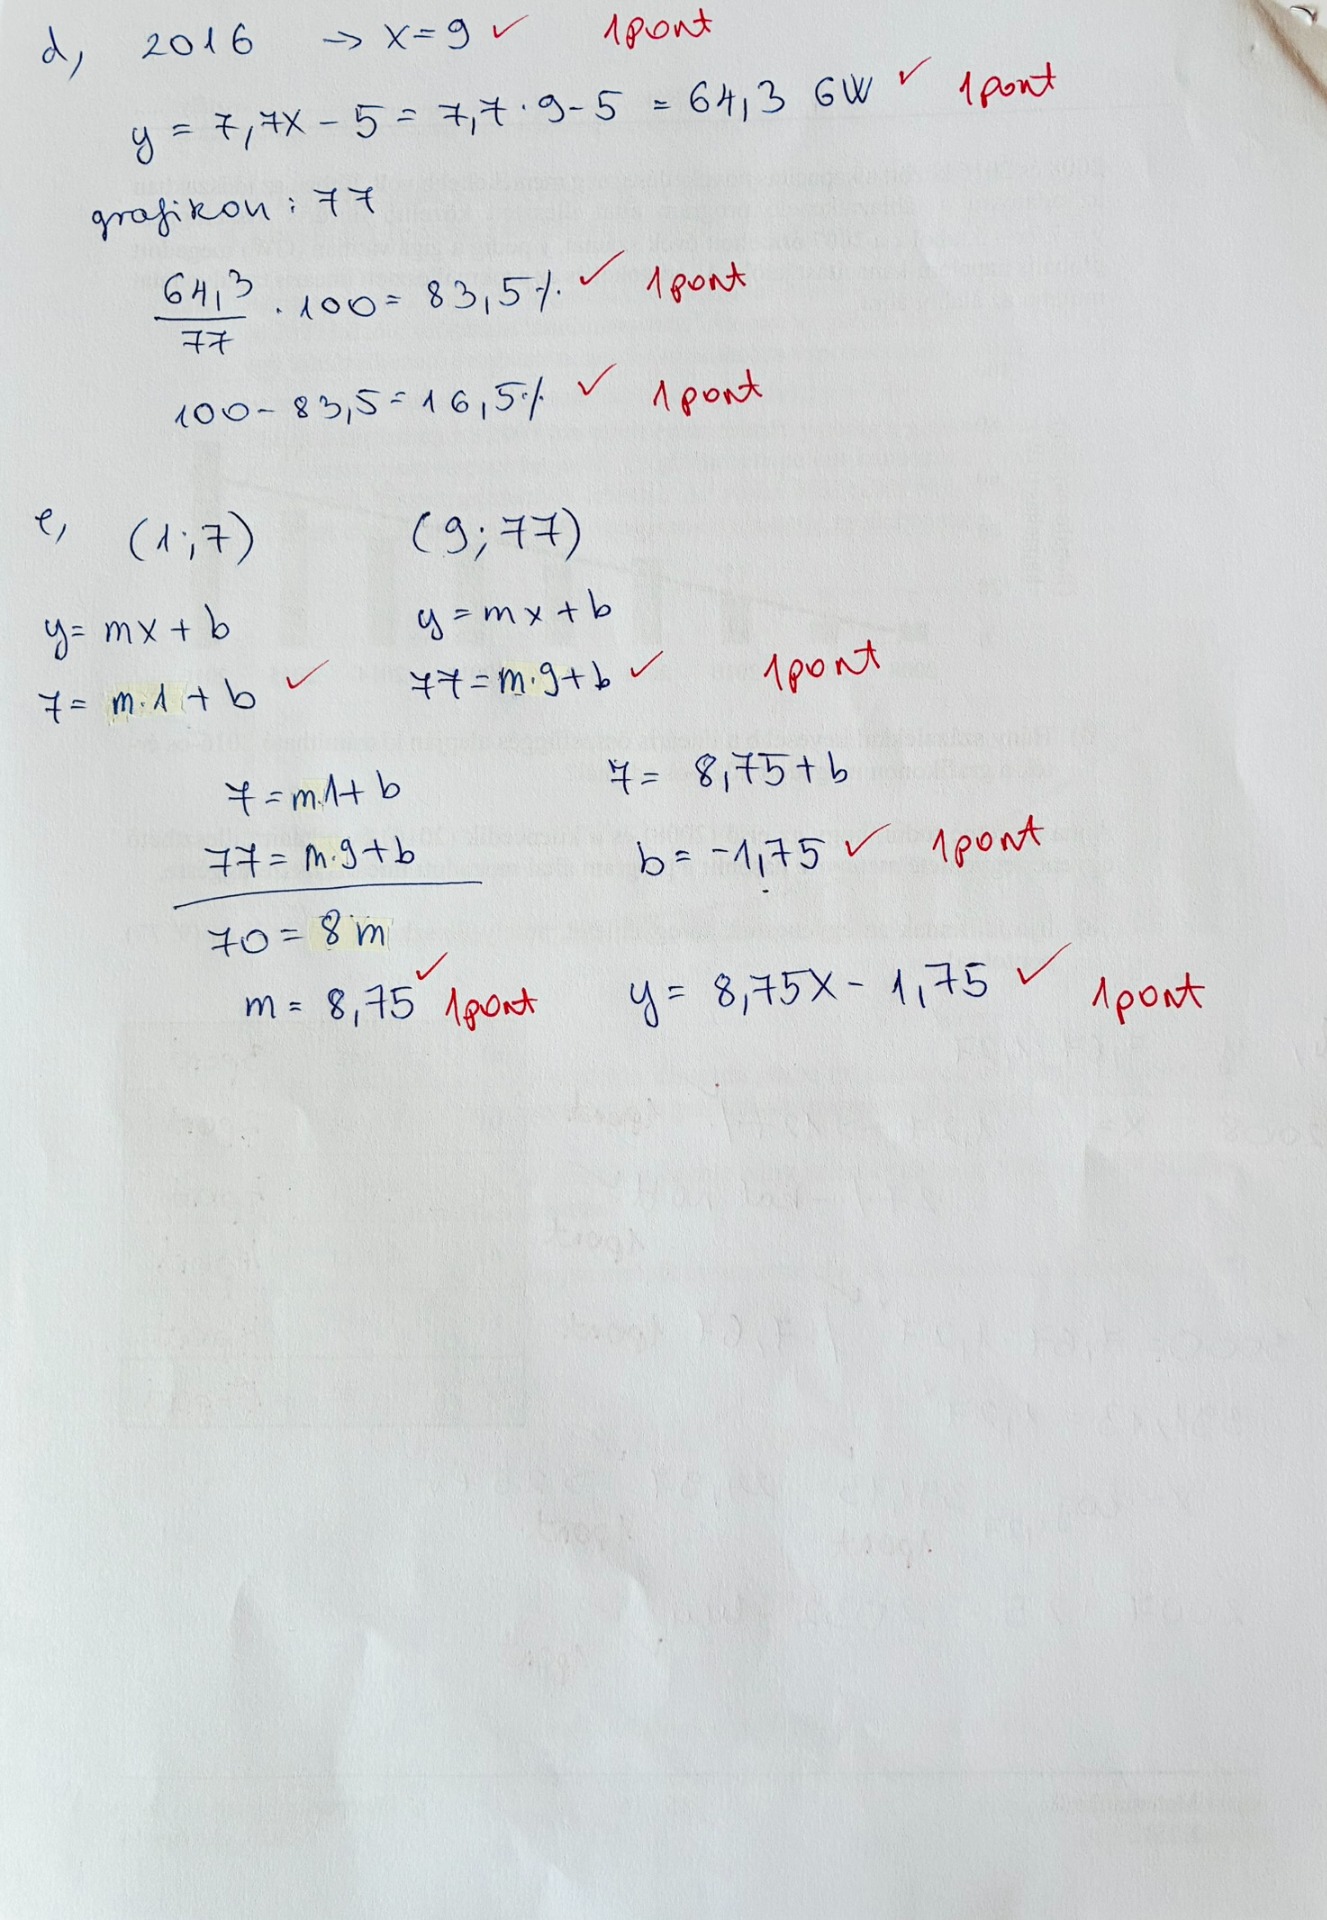 d, 2016 → x=9 ✓ 1pont
y = 7,7x - 5 = 7,7·9-5 = 64,3 GW ✓ 1pont
grafikon: 77
64,3/77 · 100 = 83,5% ✓ 1pont
100 - 83,5 = 16,5% ✓ 1pont
e, (1;7) (9;77)
y = mx + b y = mx + b
7 = m·1 + b ✓ 77 = m·9+b ✓ 1pont
7 = m·1+ b 7 = 8,75+b
77 = m·9+b b = -1,75 ✓ 1pont
70 = 8m
m = 8,75 ✓ 1pont y = 8,75x - 1,75 ✓ 1pont